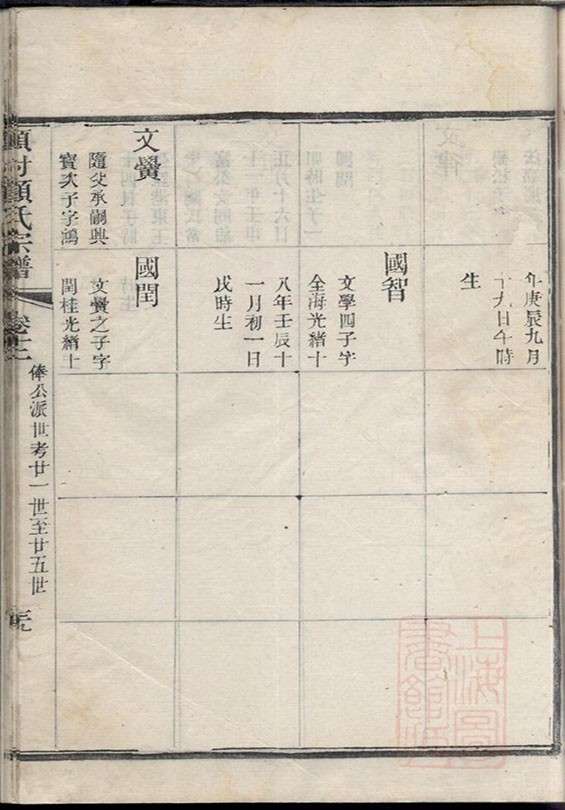 年庚辰九月
十九日午時
生
國智
文學四子字
全海光緒十
八年壬辰十
一月初一日
戌時生
文黌
隨父承嗣興
寳次子字鴻
國閏
文黌之子字
閏桂光緒十
顧氏宗譜
卷十二
俸公派世考廿一世至廿五世
上海圖
書館藏